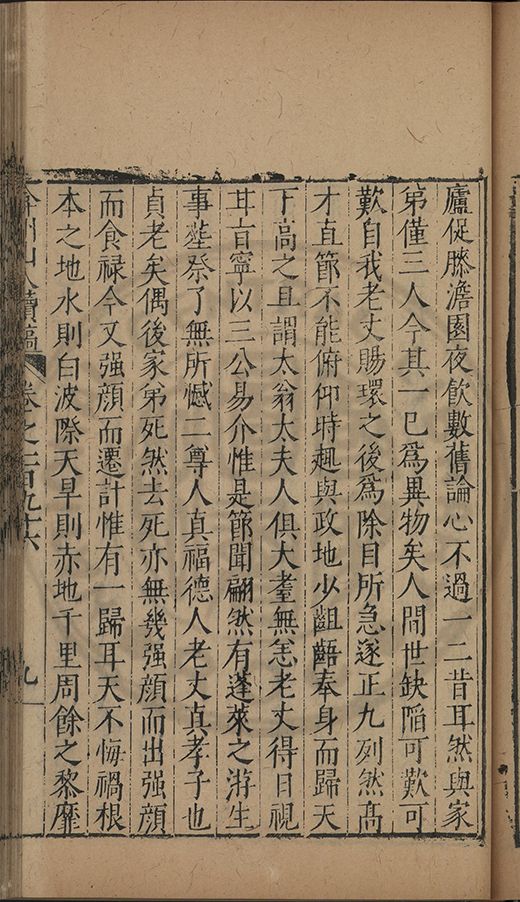 廬促膝澹園夜飲數舊論心不過一二昔耳然與家
弟僅三人今其一已爲異物矣人間世缺陷可歎可
歎自我老丈賜環之後爲除目所急逐正九列然髙
才直節不能俯仰時趣與政地少齟齬奉身而歸天
下高之且謂太翁太夫人俱大耋無恙老丈得日視
甘旨寧以三公易介惟是節聞翩然有蓬萊之游生
事塟祭了無所憾二尊人真福德人老丈真孝子也
貞老矣偶後家弟死然去死亦無幾强顔而出强顔
而食禄今又强顔而遷計惟有一歸耳天不悔禍根
本之地水則白波際天旱則赤地千里周餘之黎靡
弇州山人續稿 卷之一百九十六 九